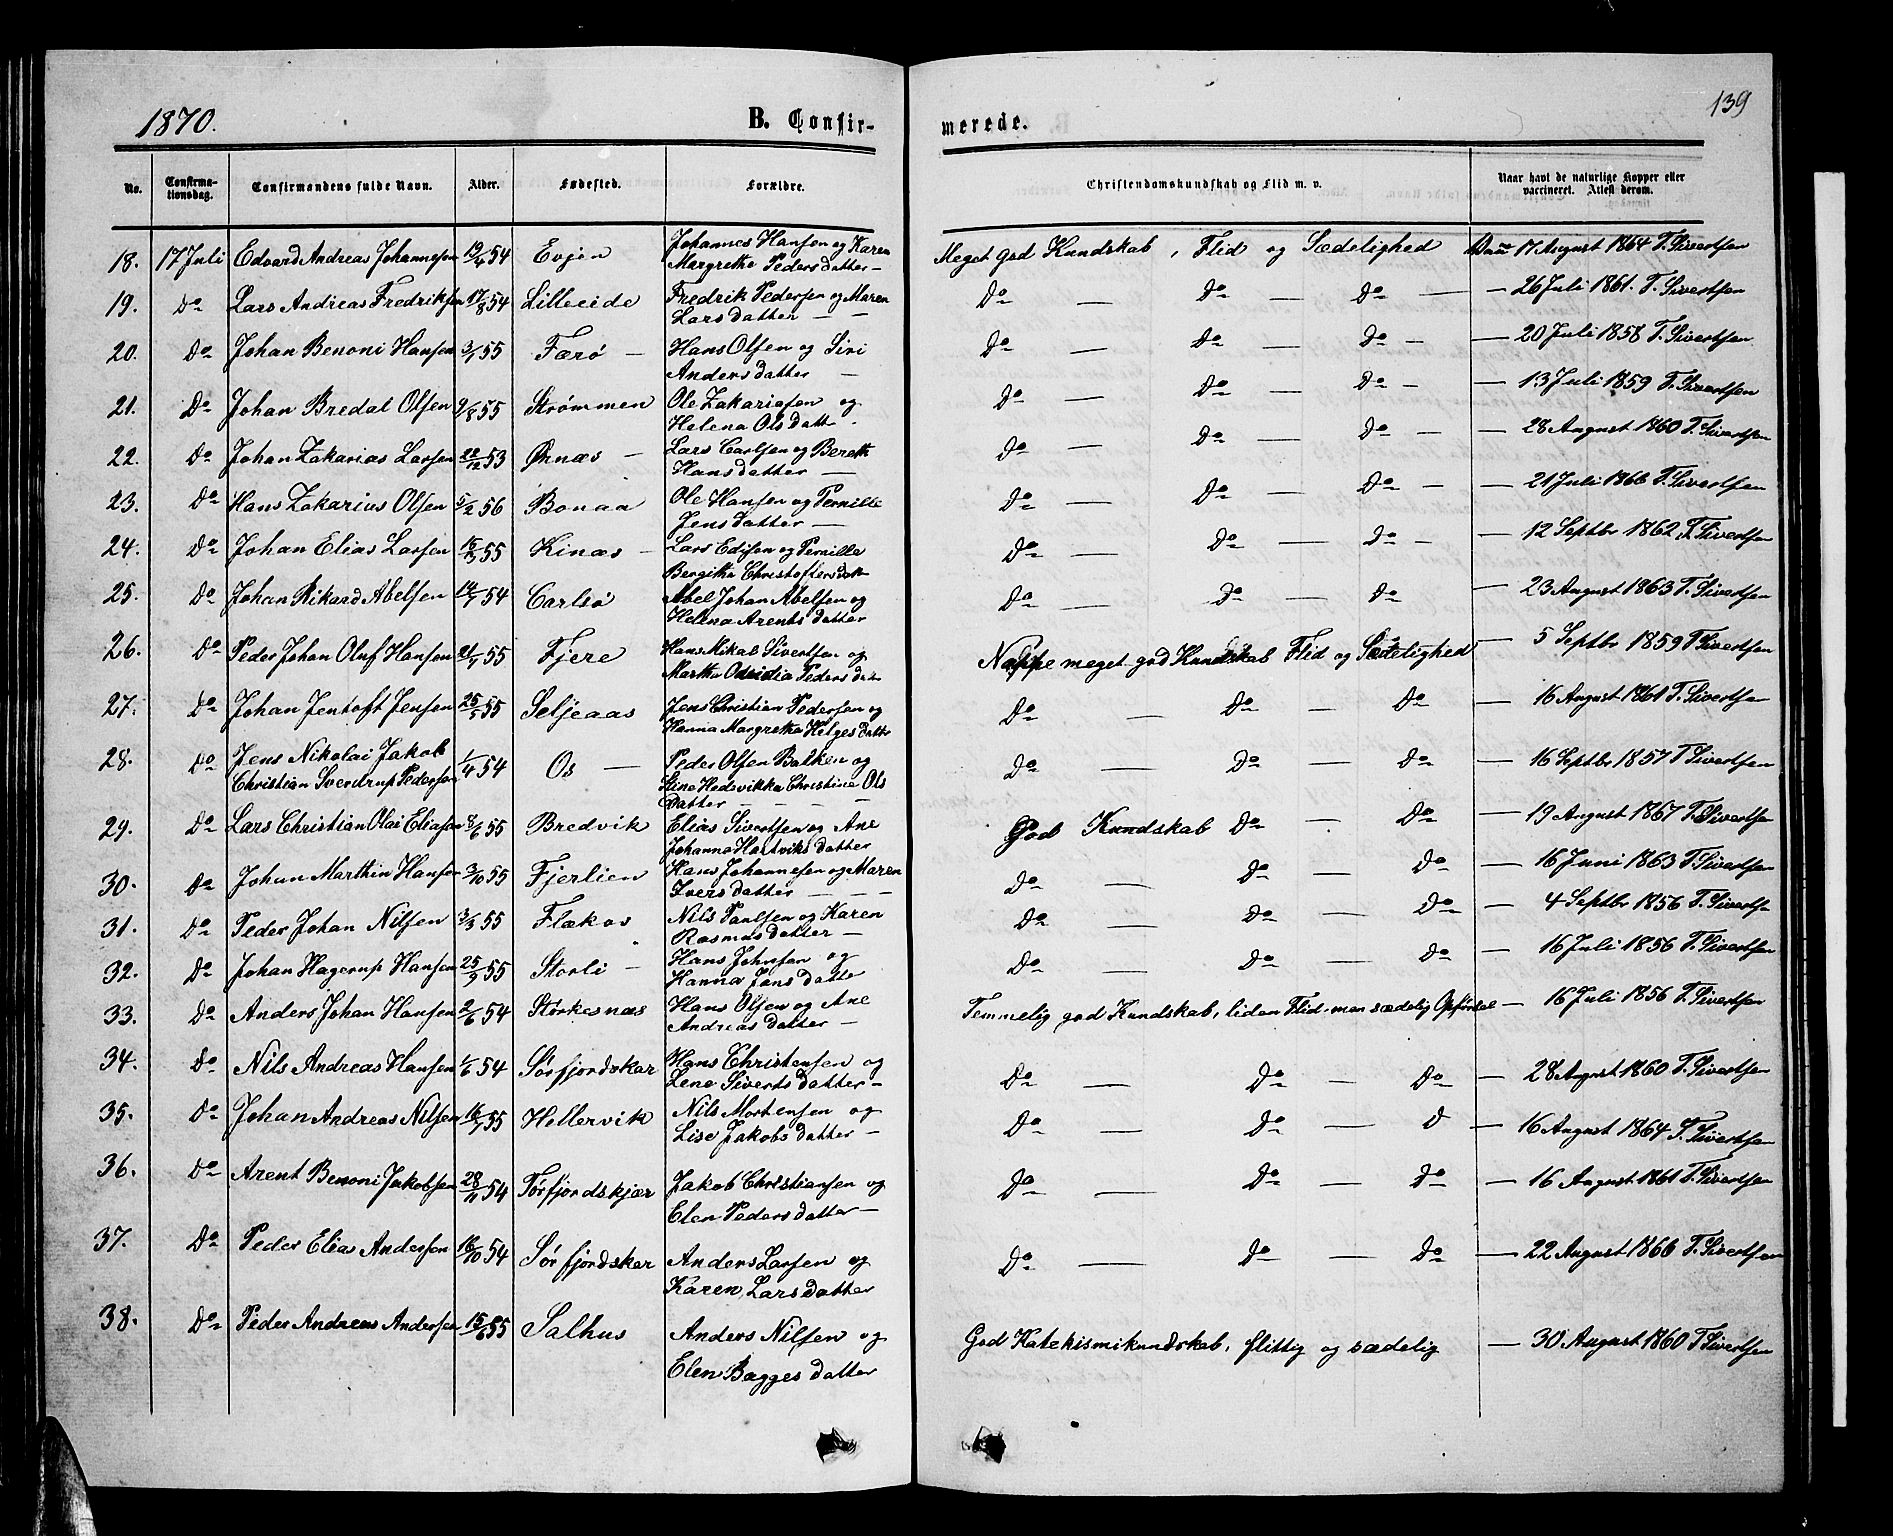 1870.
B. Confir-
merede.
139
No.
Confirma-
tionsdag.
Confirmandens fulde Navn.
Alder.
Fødested.
Forældre.
Christendomskundskab og Flid m. v.
Naar havt de naturlige Kopper eller
vaccineret. Attest derom.
18. 17 Juli Edvard Andreas Johannesen 19/4 54 Evjen Johannes Hansen og Karen
Margrethe Pedersdatter — Meget god Kundskab, Flid og Sædelighed Vacc 17 August 1864 T. Sivertsen
19. Do Lars Andreas Fredriksen 17/8 54 Lilleeide Fredrik Pedersen og Maren
Larsdatter — — Do — Do — Do — — 26 Juli 1861. T. Sivertsen
20. Do Johan Benoni Hansen 3/7 55 Færø — Hans Olsen og Siri
Andersdatter — Do — Do — Do — — 20 Juli 1858 T. Sivertsen
21. Do Johan Bredal Olsen 9/8 55 Strømmen Ole Zakariasen og
Helena Olsdatt. Do — Do — Do — — 13 Juli 1859 T. Sivertsen
22. Do Johan Zakarias Larsen 22/12 53 Ørnæs — Lars Carlsen og Bereth
Hansdatter — Do — Do — Do — — 28 August 1860 T. Sivertsen
23. Do Hans Zakarius Olsen 5/2 56 Bonaa Ole Hansen og Pernille
Jensdatter — Do — Do — Do — — 21 Juli 1866 T. Sivertsen
24. Do Johan Elias Larsen 55 Kinæs — Lars Edisen og Pernille
Bergitha Christofersdatt Do — Do — Do — — 12 Septbr 1862 T. Sivertsen
25. Do Johan Rikard Abelsen 14/7 54 Carlsø Abel Johan Abelsen og
Helena Arentsdatter Do — Do — Do — 23 August 1863 T. Sivertsen
26. Do Peder Johan Oluf Hansen 21/7 55 Fjere Hans Mikal Sivertsen og
Martha Pedersdatr Nappe meget god Kundskab Flid og Sædelighed — 5 Septbr 1859 T. Sivertsen
27. Do Johan Jentoft Jensen 25/5 55 Seljeaas Jens Christian Pedersen og
Hanna Margretha Helgesdatter Do — Do — Do — 16 August 1861 T. Sivertsen
28. Do Jens Nikolai Jakob
Christian Sverdrup Pedersen 1/4 54 Os — Peder Olsen Balken og
Stine Hedevikka Christine Ols
datter — — — — Do — Do — Do — 16 Septbr 1857 T. Sivertsen
29. Do Lars Christian Olai Eliasen 8/6 55 Bredvik Elias Sivertsen og Ane
Johanna Hartviksdatter God Kundskab Do — Do — 19 August 1867 T. Sivertsen
30. Do Johan Marthin Hansen 3/10 55 Fjerlien Hans Johannesen og Maren
Iversdatter — — — Do — Do — Do — 16 Juni 1863 T. Sivertsen
31. Do Peder Johan Nilsen 3/3 55 Flækos Nils Paulsen og Karen
Rasmusdatter — Do — Do — Do — 4 Septbr 1856 T. Sivertsen
32. Do Johan Hagerup Hansen 25/9 55 Storli — Hans Johnsen og
Hanna Jensdatter Do — Do — Do — 16 Juli 1856 T. Sivertsen
33. Do Anders Johan Hansen 2/6 54 Storkesnæs Hans Olsen og Ane
Andreasdatter — Temmelig god Kundskab, liden Flid, men sædelig Opførsel — 16 Juli 1856 T. Sivertsen
34. Do Nils Andreas Hansen 1/6 54 Sørfjordskar Hans Christensen og
Lene Sivertsdatter — Do — Do — Do — 28 August 1860 T. Sivertsen
35. Do Johan Andreas Nilsen 16/7 55 Hellervik Nils Mortensen og
Lise Jakobsdatter — Do — Do — D — 16 August 1864 T. Sivertsen
36. Do Arent Benoni Jakobsen 28/11 54 Sørfjordskjær Jakob Christiansen og
Elen Pedersdatter — Do — Do — Do — 16 August 1861 T. Sivertsen
37. Do Peder Elias Andersen 16/10 54 Sørfjordskar Anders Larsen og
Karen Larsdatter Do — Do — Do — 22 August 1866 T. Sivertsen
38. Do Peder Andreas Andersen 15/6 55 Salhus Anders Nilsen og
Elen Baggesdatter God Katekismikundskab, flittig og sædelig — 30 August 1860 T. Sivertsen